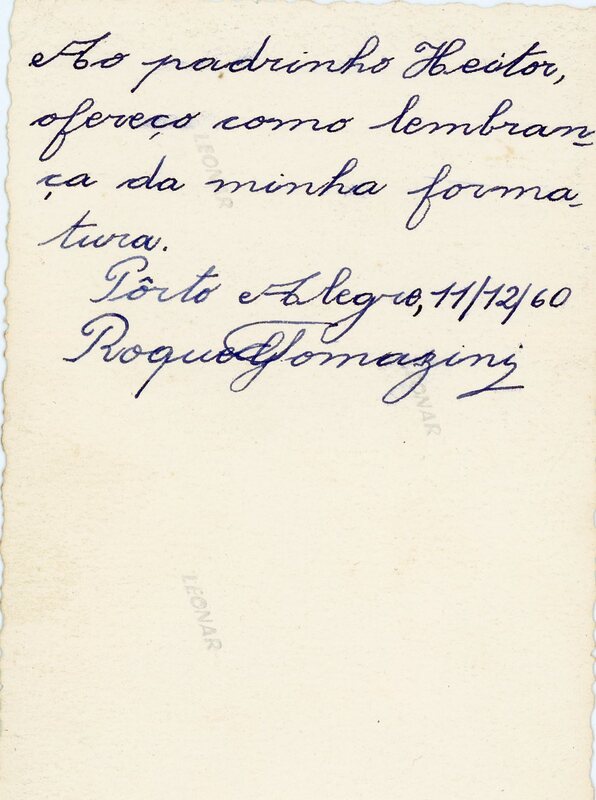 Ao padrinho Heitor,
ofereço como lembran-
ça da minha forma-
tura.
Pôrto Alegre, 11/12/60
Roque Tomazini
LEONAR
LEONAR
LEONAR